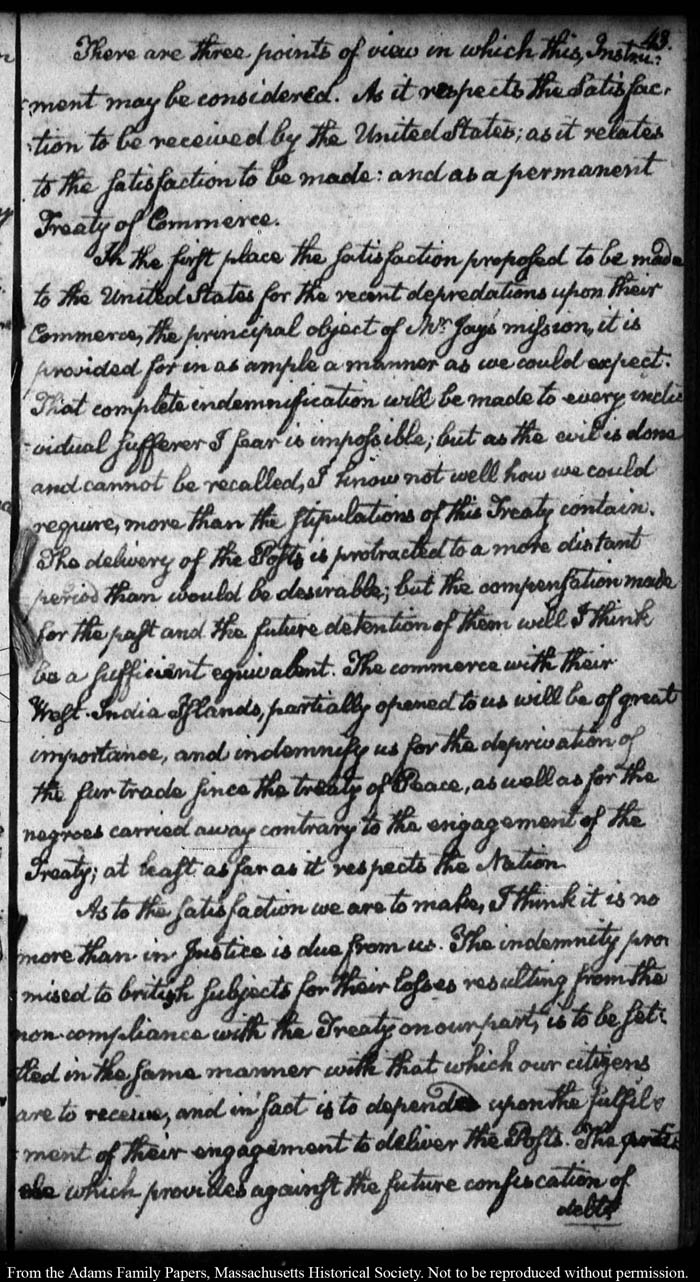 43.
There are three points of view in which this, Instru:
ment may be considered. As it respects the Satisfac,
tion to be received by the United States; as it relates
to the satisfaction to be made: and as a permanent
Treaty of Commerce.
In the first place the satisfaction proposed to be made
to the United States for the recent depredations upon their
Commerce, the principal object of Mr. Jay's mission, it is
provided for in as ample a manner as we could expect.
That complete indemnification will be made to every indi
vidual sufferer I fear is impossible; but as the evil is done
and cannot be recalled, I know not well how we could
require, more than the stipulations of this Treaty contain.
The delivery of the Posts is protracted to a more distant
period than would be desirable; but the compensation made
for the past and the future detention of them will I think
be a sufficient equivalent. The commerce with their
West-India Islands, partially opened to us will be of great
importance, and indemnify us for the deprivation of
the fur trade since the treaty of Peace, as well as for the
negroes carried away contrary to the engagement of the
Treaty; at least as far as it respects the Nation
As to the satisfaction we are to make, I think it is no
more than in Justice is due from us. The indemnity pro,
mised to british subjects for their losses resulting from the
non-compliance with the Treaty on our part, is to be set:
tled in the same manner with that which our citizens
are to receive, and in fact is to depend upon the fulfil
ment of their engagement to deliver the Posts. The
which provides against the future confiscation of
debts
From the Adams Family Papers, Massachusetts Historical Society. Not to be reproduced without permission.